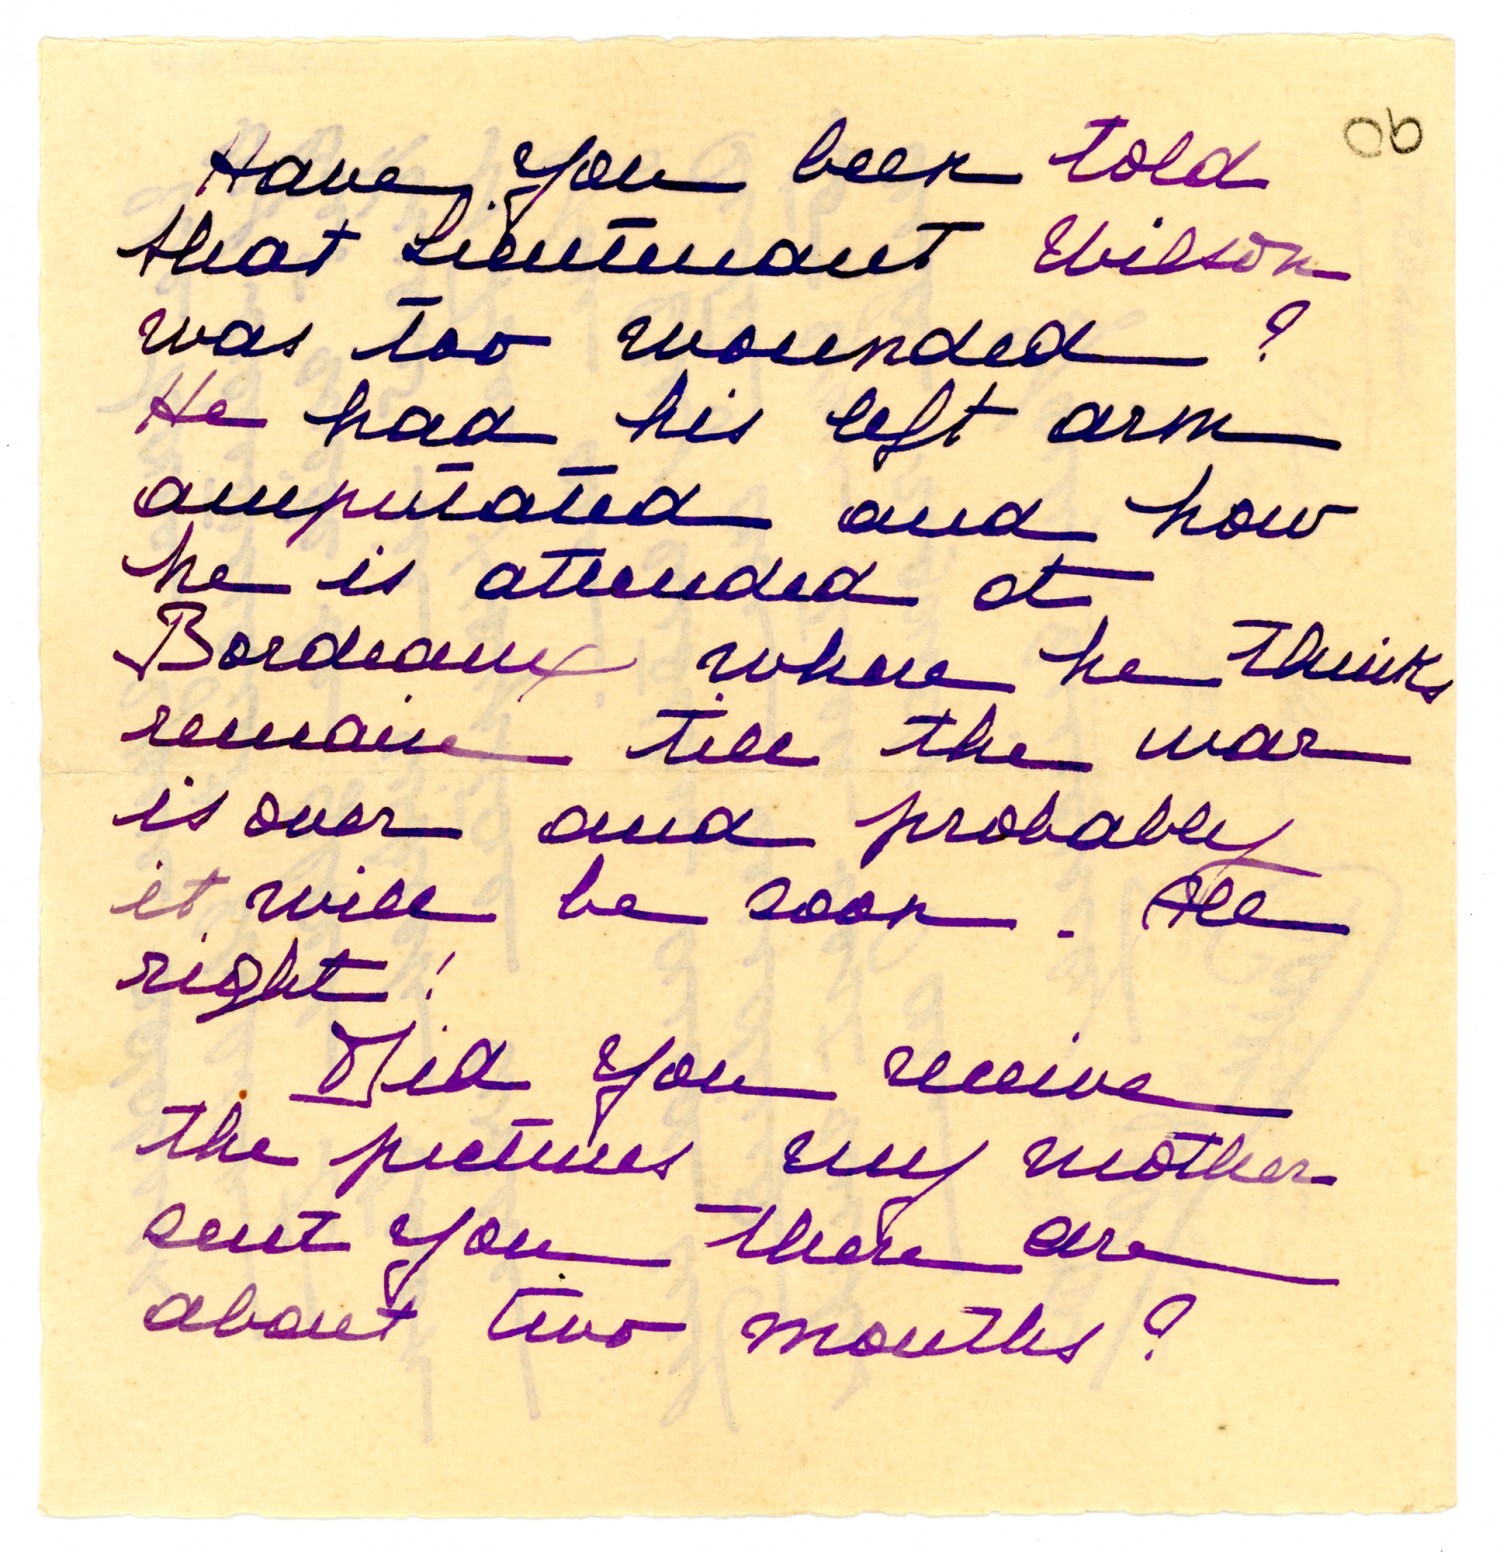 90
Have you been told
that Lieutenant Wilson
was too wounded ?
He had his left arm
amputated and now
he is attended at
Bordeaux where he thinks
remain till the war
is over and probably
it will be soon. All
right !
Did you receive
the pictures my mother
sent you there are
about two months ?